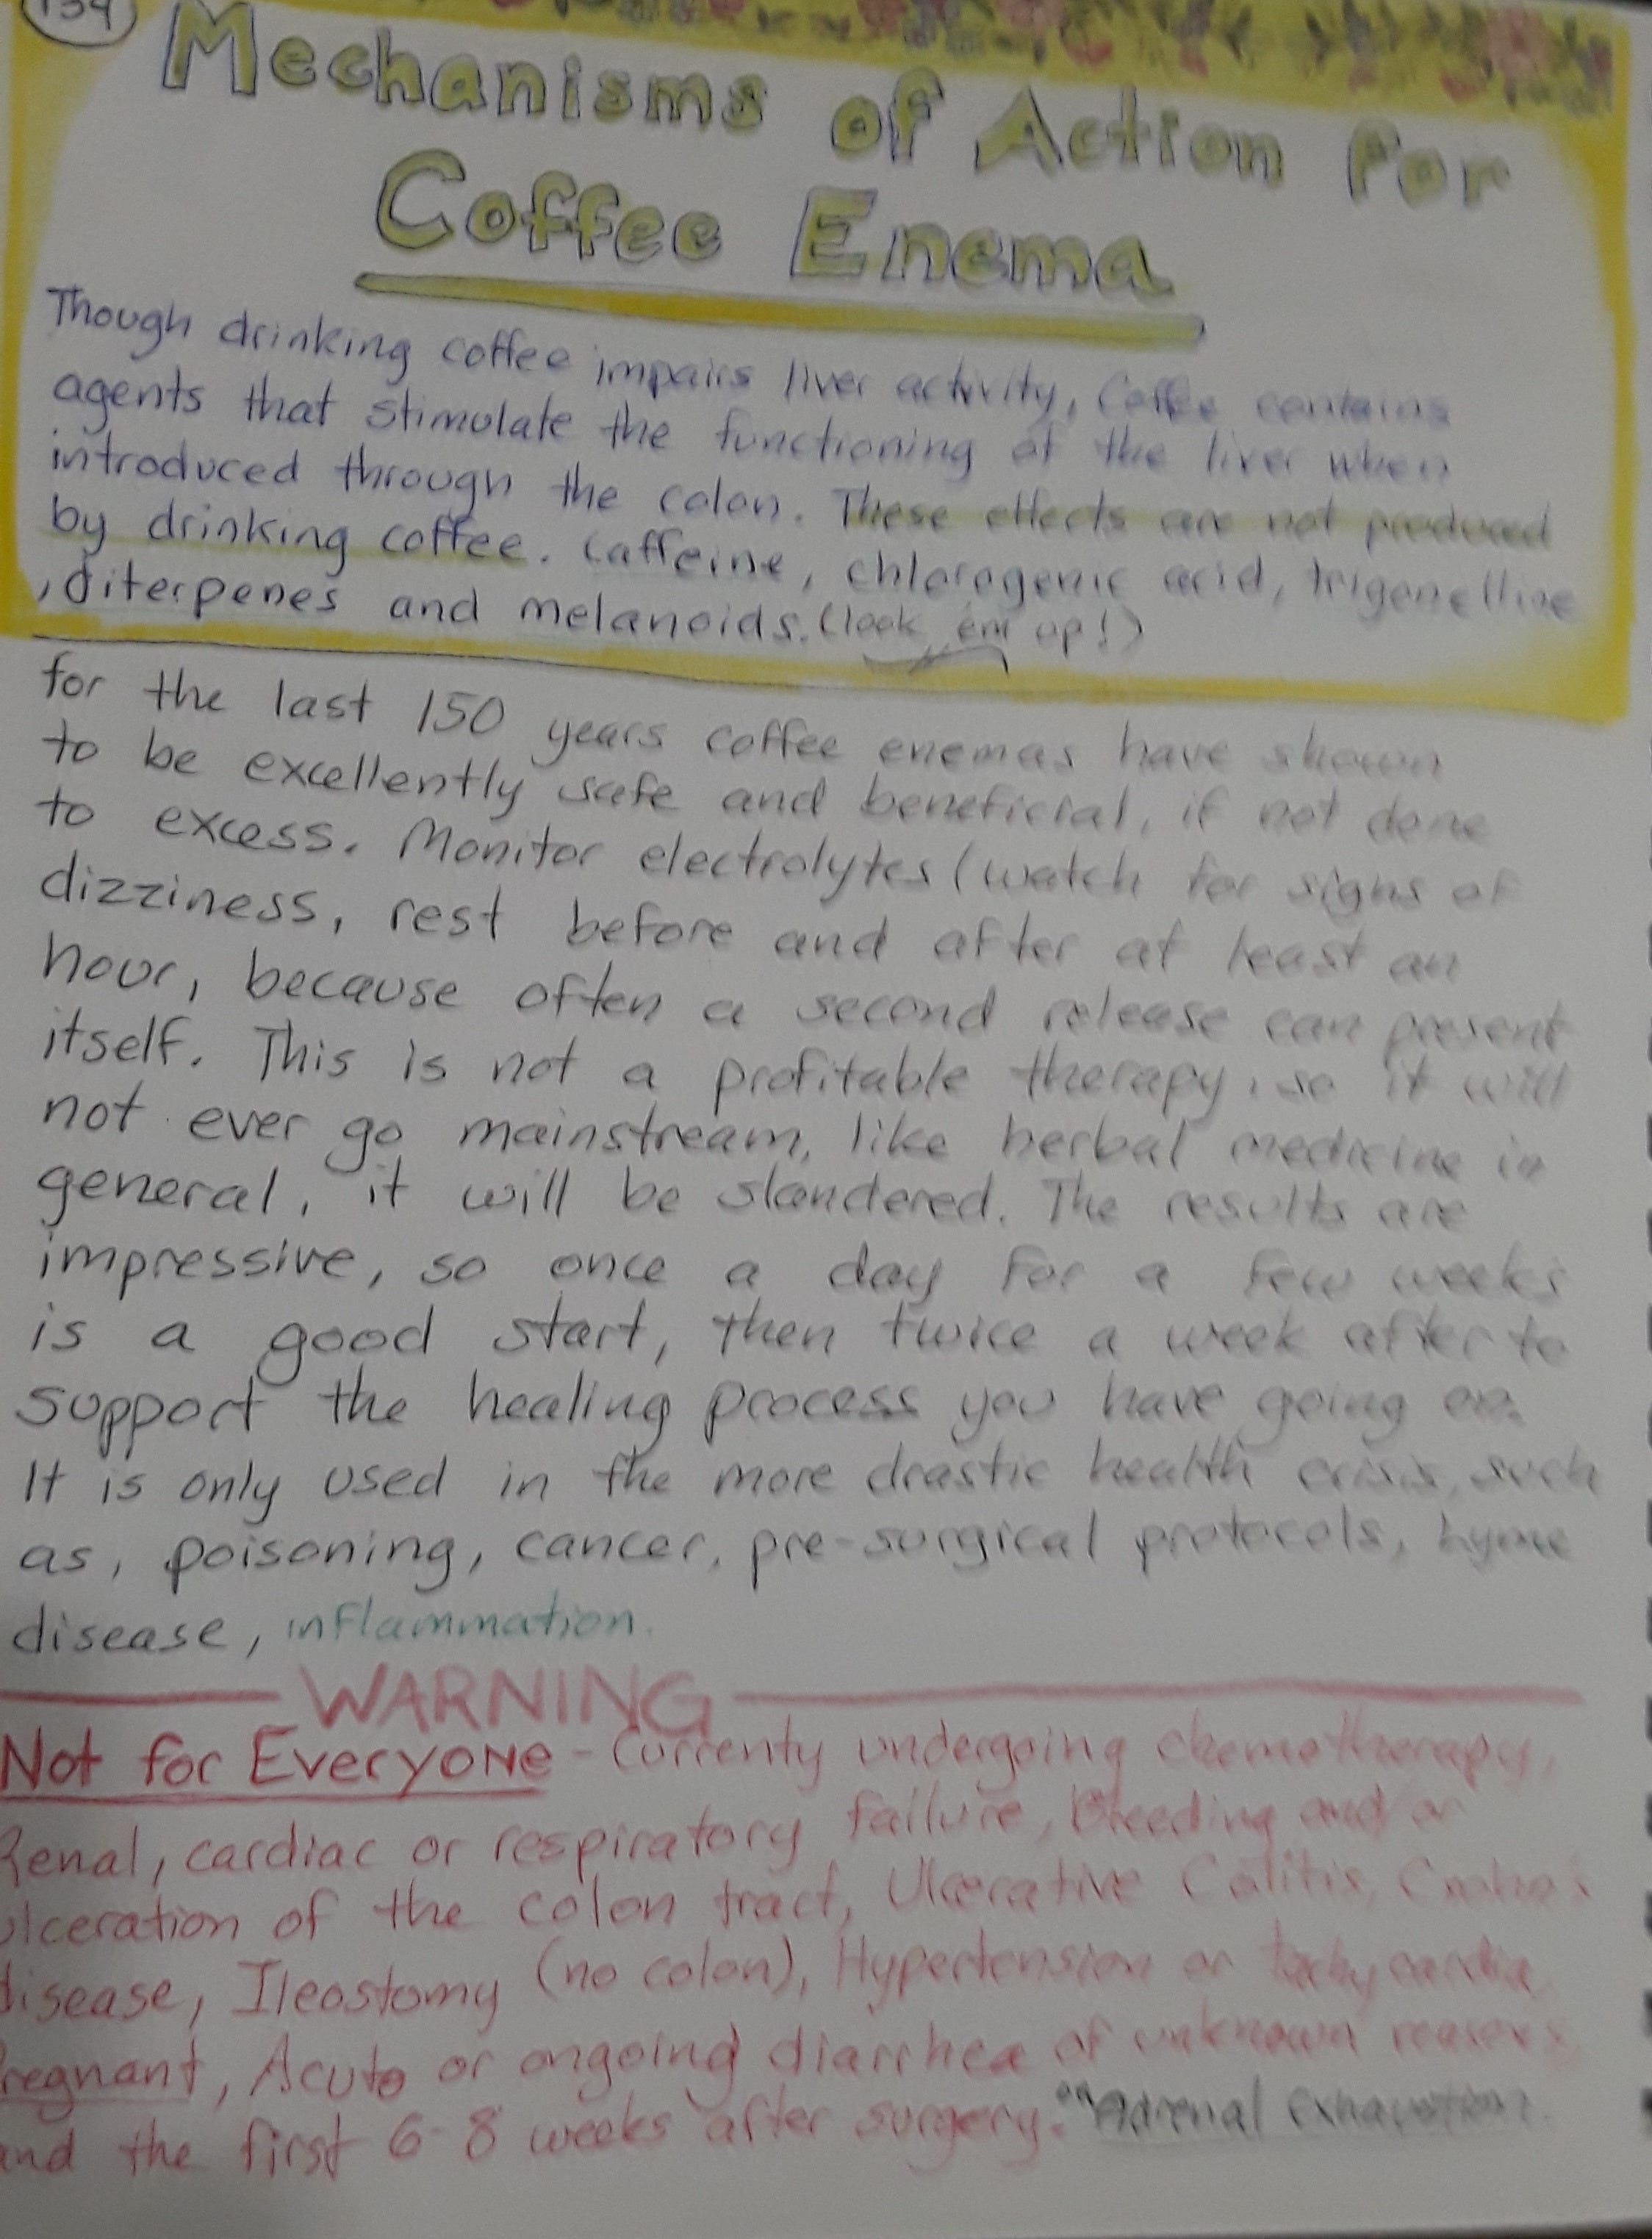 134
Mechanisms of Action for
Coffee Enema
Though drinking coffee impairs liver activity, Coffee contains
agents that stimulate the functioning of the liver when
introduced through the colon. These effects are not produced
by drinking coffee. Caffeine, chlorogenic acid, trigonelline
, diterpenes and melanoids. (look em up!)
for the last 150 years coffee enemas have shown
to be excellently safe and beneficial, if not done
to excess. Monitor electrolytes (watch for signs of
dizziness, rest before and after at least an
hour, because often a second release can present
itself. This is not a profitable therapy, so it will
not ever go mainstream, like herbal medicine in
general, it will be slandered. The results are
impressive, so once a day for a few weeks
is a good start, then twice a week after to
support the healing process you have going on.
It is only used in the more drastic health crisis, such
as, poisoning, cancer, pre-surgical protocols, lyme
disease, inflammation.
WARNING
Not for Everyone - Currenty undergoing chemotherapy,
Renal, cardiac or respiratory failure, Bleeding and/or
ulceration of the colon tract, Ulcerative Colitis, Crohn's
disease, Ileostomy (no colon), Hypertension or tachycardia
Pregnant, Acute or ongoing diarrhea of unknown reasons
and the first 6-8 weeks after surgery. or "Adrenal Exhaustion.